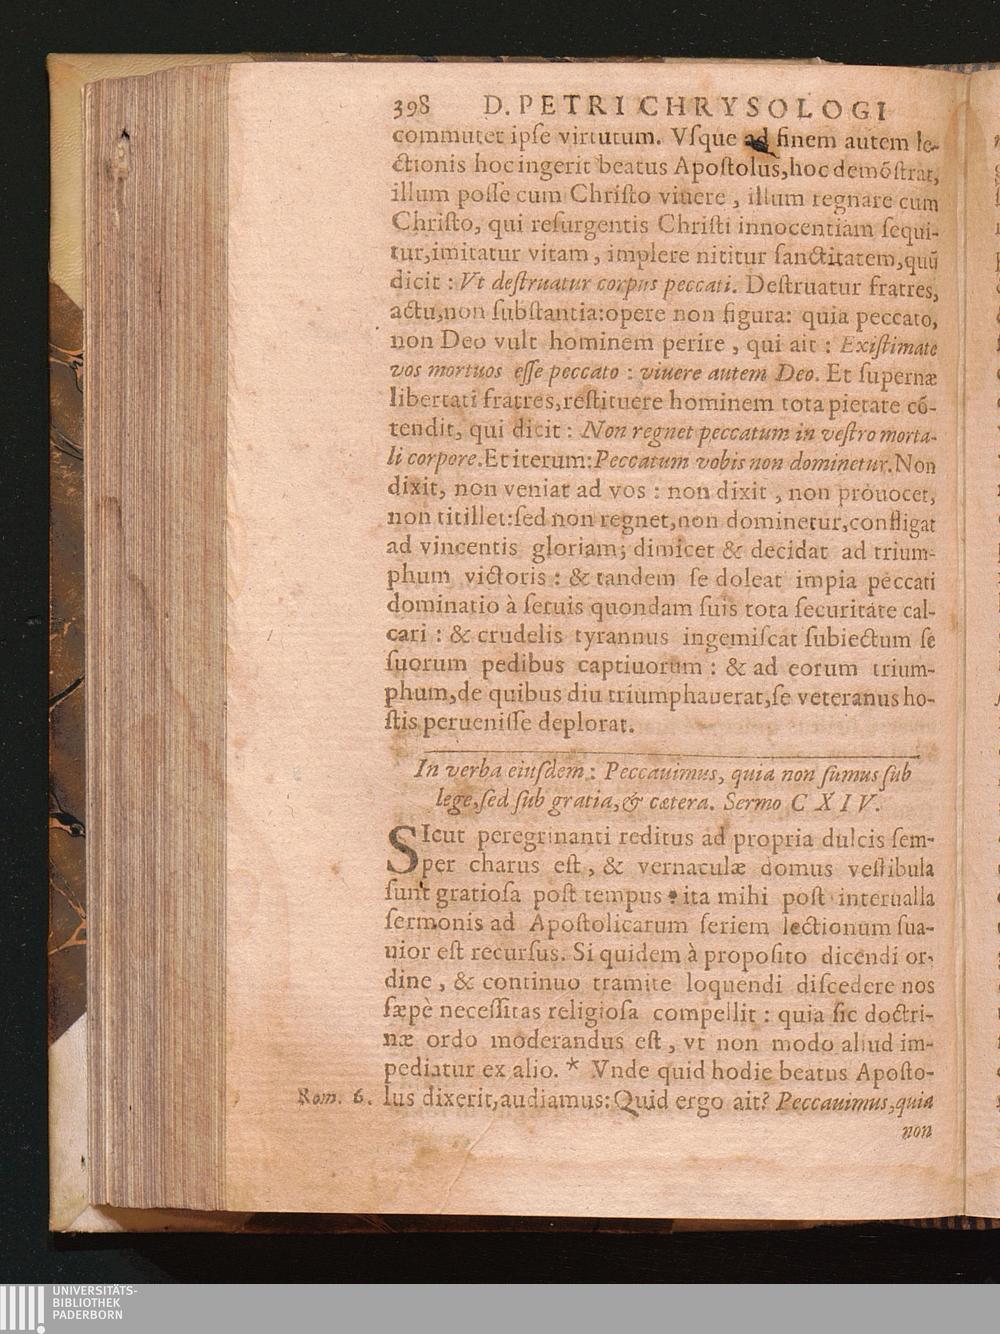 398 D. PETRI CHRYSOLOGI
commutet ipſe virtutum. Vſque ad finem autem le-
ctionis hoc ingerit beatus Apoſtolus, hoc demōſtrat,
illum poſſe cum Chriſto viuere, illum regnare cum
Chriſto, qui reſurgentis Chriſti innocentiam ſequi-
tur, imitatur vitam, implere nititur ſanctitatem, quū
dicit: Vt deſtruatur corpus peccati. Deſtruatur fratres,
actu, non ſubſtantia: opere non figura: quia peccato,
non Deo vult hominem perire, qui ait: Exiſtimate
vos mortuos eſſe peccato: viuere autem Deo. Et ſupernæ
libertati fratres, reſtituere hominem tota pietate cō-
tendit, qui dicit: Non regnet peccatum in veſtro morta-
li corpore. Et iterum: Peccatum vobis non dominetur. Non
dixit, non veniat ad vos: non dixit, non prouocet,
non titillet: ſed non regnet, non dominetur, confligat
ad vincentis gloriam; dimicet & decidat ad trium-
phum victoris: & tandem ſe doleat impia peccati
dominatio à ſeruis quondam ſuis tota ſecuritate cal-
cari: & crudelis tyrannus ingemiſcat ſubiectum ſe
ſuorum pedibus captiuorum: & ad eorum trium-
phum, de quibus diu triumphauerat, ſe veteranus ho-
ſtis perueniſſe deplorat.
In verba eiuſdem: Peccauimus, quia non ſumus ſub
lege, ſed ſub gratia, & cætera. Sermo CXIV.
SIcut peregrinanti reditus ad propria dulcis ſem-
per charus eſt, & vernaculæ domus veſtibula
ſunt gratioſa poſt tempus: ita mihi poſt interualla
ſermonis ad Apoſtolicarum ſeriem lectionum ſua-
uior eſt recurſus. Si quidem à propoſito dicendi or-
dine, & continuo tramite loquendi diſcedere nos
ſæpè neceſſitas religioſa compellit: quia ſic doctri-
næ ordo moderandus eſt, vt non modo aliud im-
pediatur ex alio. * Vnde quid hodie beatus Apoſto-
Rom. 6. lus dixerit, audiamus: Quid ergo ait? Peccauimus, quia
non
UNIVERSITÄTS-
BIBLIOTHEK
PADERBORN